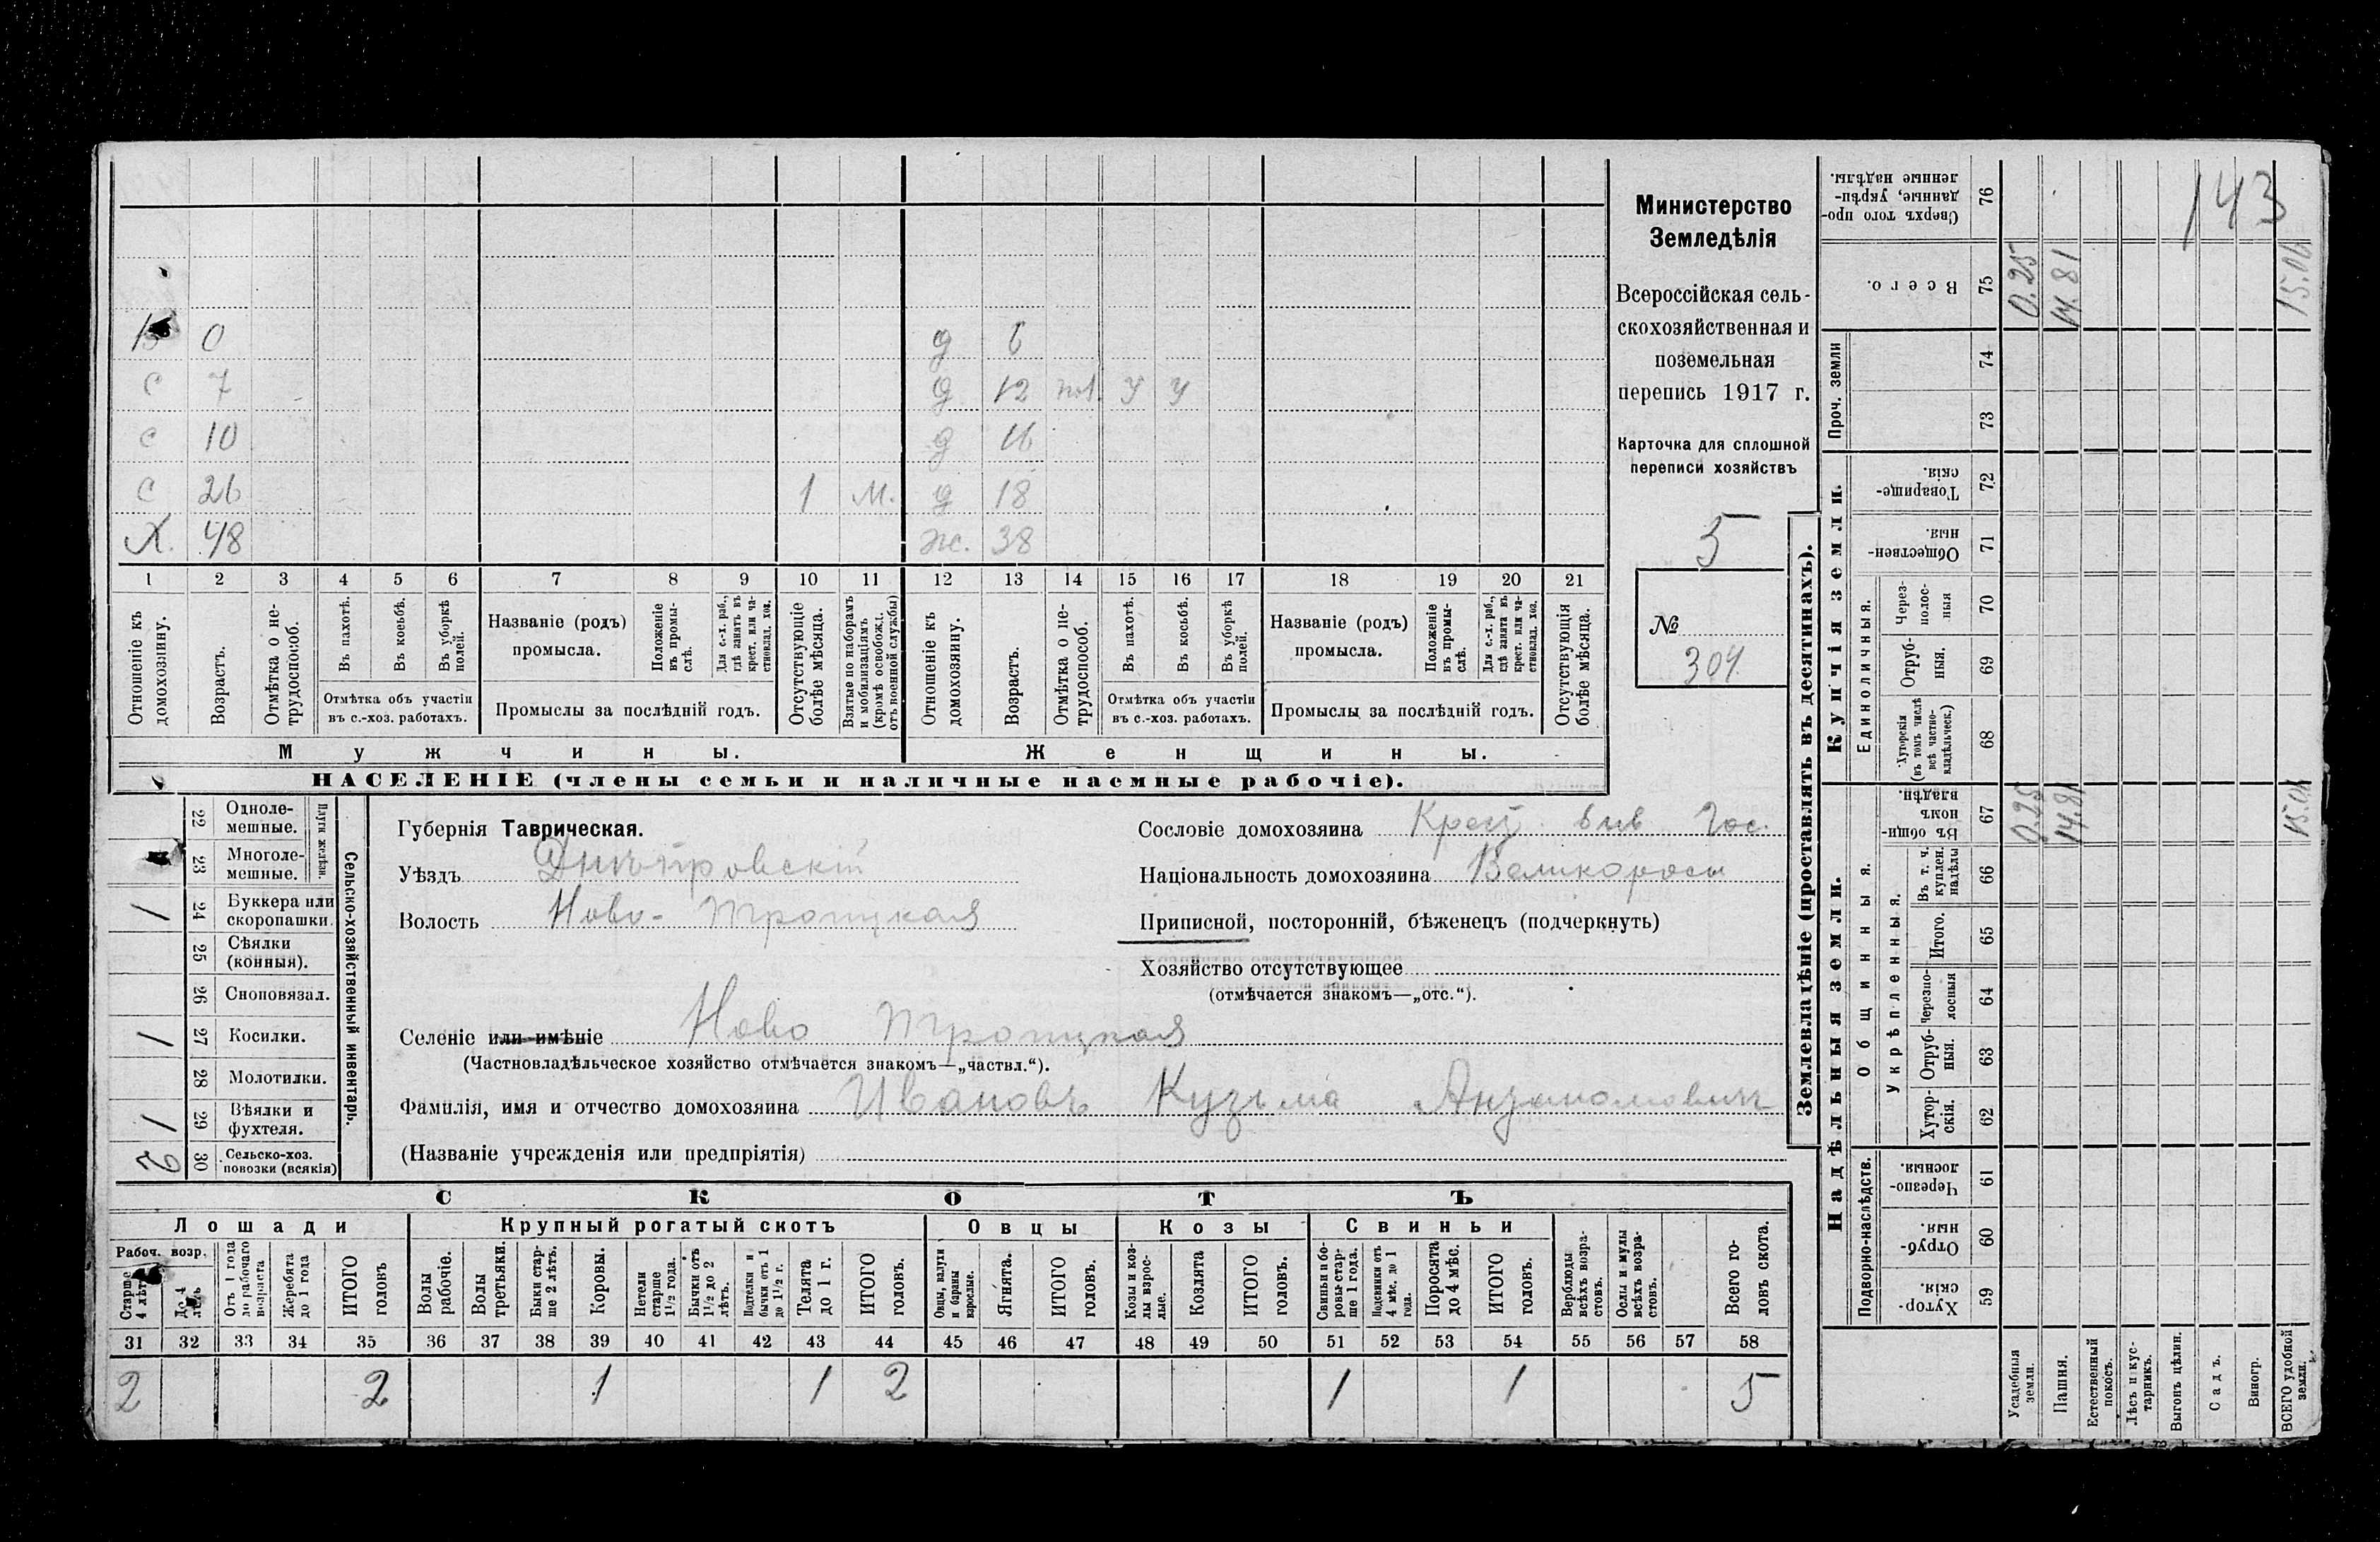 Министерство
Земледѣлія
Всероссійская сель-
скохозяйственная и
поземельная
перепись 1917 г.
Карточка для сплошной
переписи хозяйствъ
5
№
304.
143
0 д 6
с 7 д 12 У У
с 10 д 16
с 26 1 м. д 18
Х. 48 ж. 38
1 2 3 4 5 6 7 8 9 10 11 12 13 14 15 16 17 18 19 20 21
Отношеніе къ домохозяину.
Возрастъ.
Отмѣтка о не-трудоспособ.
Въ пахотѣ.
Въ косьбѣ.
Въ уборкѣ полей.
Отмѣтка объ участіи
въ с.-хоз. работахъ.
Названіе (родъ)
промысла.
Положеніе въ промы-слѣ.
Для с.-х. раб., гдѣ занятъ въ крест. или ча-стновлад. хоз.
Промыслы за послѣдній годъ.
Отсутствующіе болѣе мѣсяца.
Взятые по наборамъ и мобилизаціямъ (кромѣ освобожд. отъ военной службы)
Отношеніе къ домохозяину.
Возрастъ.
Отмѣтка о не-трудоспособ.
Въ пахотѣ.
Въ косьбѣ.
Въ уборкѣ полей.
Отмѣтка объ участіи
въ с.-хоз. работахъ.
Названіе (родъ)
промысла.
Положеніе въ промы-слѣ.
Для с.-х. раб., гдѣ занята въ крест. или ча-стновлад. хоз.
Промыслы за послѣдній годъ.
Отсутствующія болѣе мѣсяца.
Мужчины. Женщины.
НАСЕЛЕНІЕ (члены семьи и наличные наемные рабочіе).
Сельско-хозяйственный инвентарь.
Плуги желѣзн.
22 Одноле-мешные.
23 Многоле-мешные.
1 24 Буккера или скоропашки.
25 Сѣялки (конныя).
26 Сноповязал.
1 27 Косилки.
28 Молотилки.
1 29 Вѣялки и фухтеля.
2 30 Сельско-хоз. повозки (всякія)
Губернія Таврическая.
Уѣздъ Днѣпровскій
Волость Ново-Троицкая
Сословіе домохозяина Крест. быв Гос.
Національность домохозяина Великороссы
Приписной, посторонній, бѣженецъ (подчеркнуть)
Хозяйство отсутствующее
(отмѣчается знакомъ—„отс.“).
Селеніе или имѣніе Ново Троицкая
(Частновладѣльческое хозяйство отмѣчается знакомъ—„частвл.“).
Фамилія, имя и отчество домохозяина Ивановъ Кузьма
(Названіе учрежденія или предпріятія)
СКОТЪ
Лошади Крупный рогатый скотъ Овцы Козы Свиньи
Рабоч. возр.
Старше 4 лѣтъ
До 4 лѣтъ
Отъ 1 года до рабочаго возраста
Жеребята до 1 года
ИТОГО головъ
Волы рабочіе.
Волы третьяки.
Быки стар-ше 2 лѣтъ.
Коровы.
Нетели старше 1½ года.
Бычки отъ 1½ до 2 лѣтъ.
Подтелки и бычки отъ 1 до 1½ г.
Телята до 1 г.
ИТОГО головъ.
Овцы, валухи и бараны взрослые.
Ягнята.
ИТОГО головъ.
Козы и коз-лы взрос-лые.
Козлята
ИТОГО головъ.
Свиньи и бо-ровы стар-ше 1 года.
Подсвинки отъ 4 мѣс. до 1 года.
Поросята до 4 мѣс.
ИТОГО головъ.
Верблюды всѣхъ возра-стовъ.
Ослы и мулы всѣхъ возра-стовъ.
Всего го-ловъ скота.
31 32 33 34 35 36 37 38 39 40 41 42 43 44 45 46 47 48 49 50 51 52 53 54 55 56 57 58
2 2 1 1 2 1 1 5
Землевладѣніе (проставлять въ десятинахъ).
Надѣльныя земли.
Купчія земли.
Проч. земли
Подворно-наслѣдств.
Общинныя.
Укрѣпленныя.
Единоличныя.
Сверхъ того про-данные, укрѣп-ленные надѣлы. 76
Всего. 75 0.25 14.81 15.06
74
73
Товарище-скія. 72
Обществен-ныя. 71
Через-полос-ныя 70
Отруб-ныя. 69
Хуторскія (въ томъ числѣ всѣ частно-владѣльческ.) 68
Въ общи-номъ владѣн. 67 0.25 14.81 15.06
Въ т. ч. куплен. надѣлы 66
Итого. 65
Черезпо-лосныя 64
Отруб-ныя. 63
Хутор-скія. 62
Черезпо-лосныя. 61
Отруб-ныя. 60
Хутор-скія. 59
Усадебныя земли.
Пашня.
Естественный покосъ.
Лѣсъ и кус-тарникъ.
Выгонъ цѣлин.
Садъ.
Виногр.
ВСЕГО удобной земли.